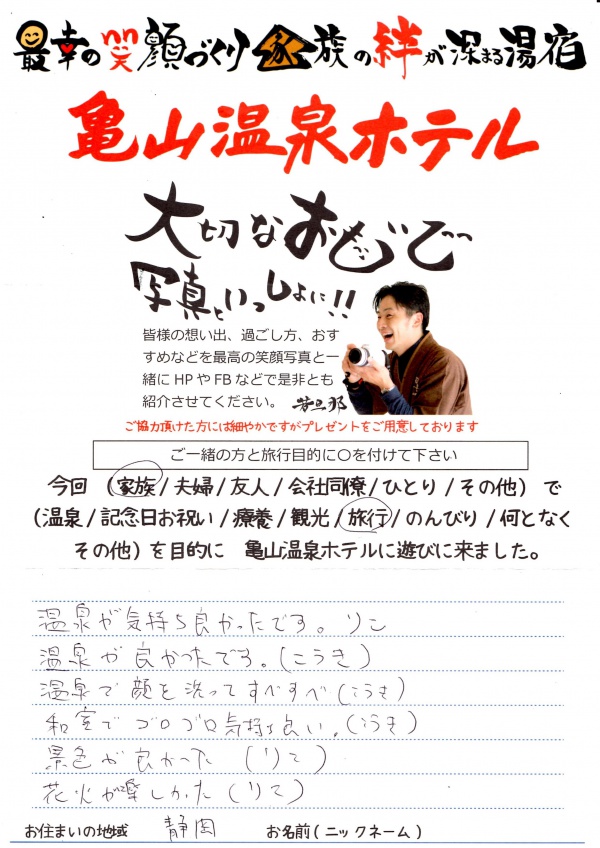 最幸の笑顔づくり 家族の絆が深まる湯宿
亀山温泉ホテル
大切なおもいで
写真といっしょに!!
皆様の想い出、過ごし方、おす
すめなどを最高の笑顔写真と一
緒にHPやFBなどで是非とも
紹介させてください。 若旦那
ご協力頂けた方には細やかですがプレゼントをご用意しております
ご一緒の方と旅行目的に〇を付けて下さい
今回 (家族/夫婦/友人/会社同僚/ひとり/その他) で
(温泉/記念日お祝い/療養/観光/旅行/のんびり/何となく
その他) を目的に 亀山温泉ホテルに遊びに来ました。
温泉が気持ち良かったです。りこ
温泉が良かったです。(こうき)
温泉で顔を洗ってすべすべ(こうき)
和室でゴロゴロ気持ち良い。(こうき)
景色が良かった (りこ)
花火が楽しかった (りこ)
お住まいの地域 静岡 お名前(ニックネーム)